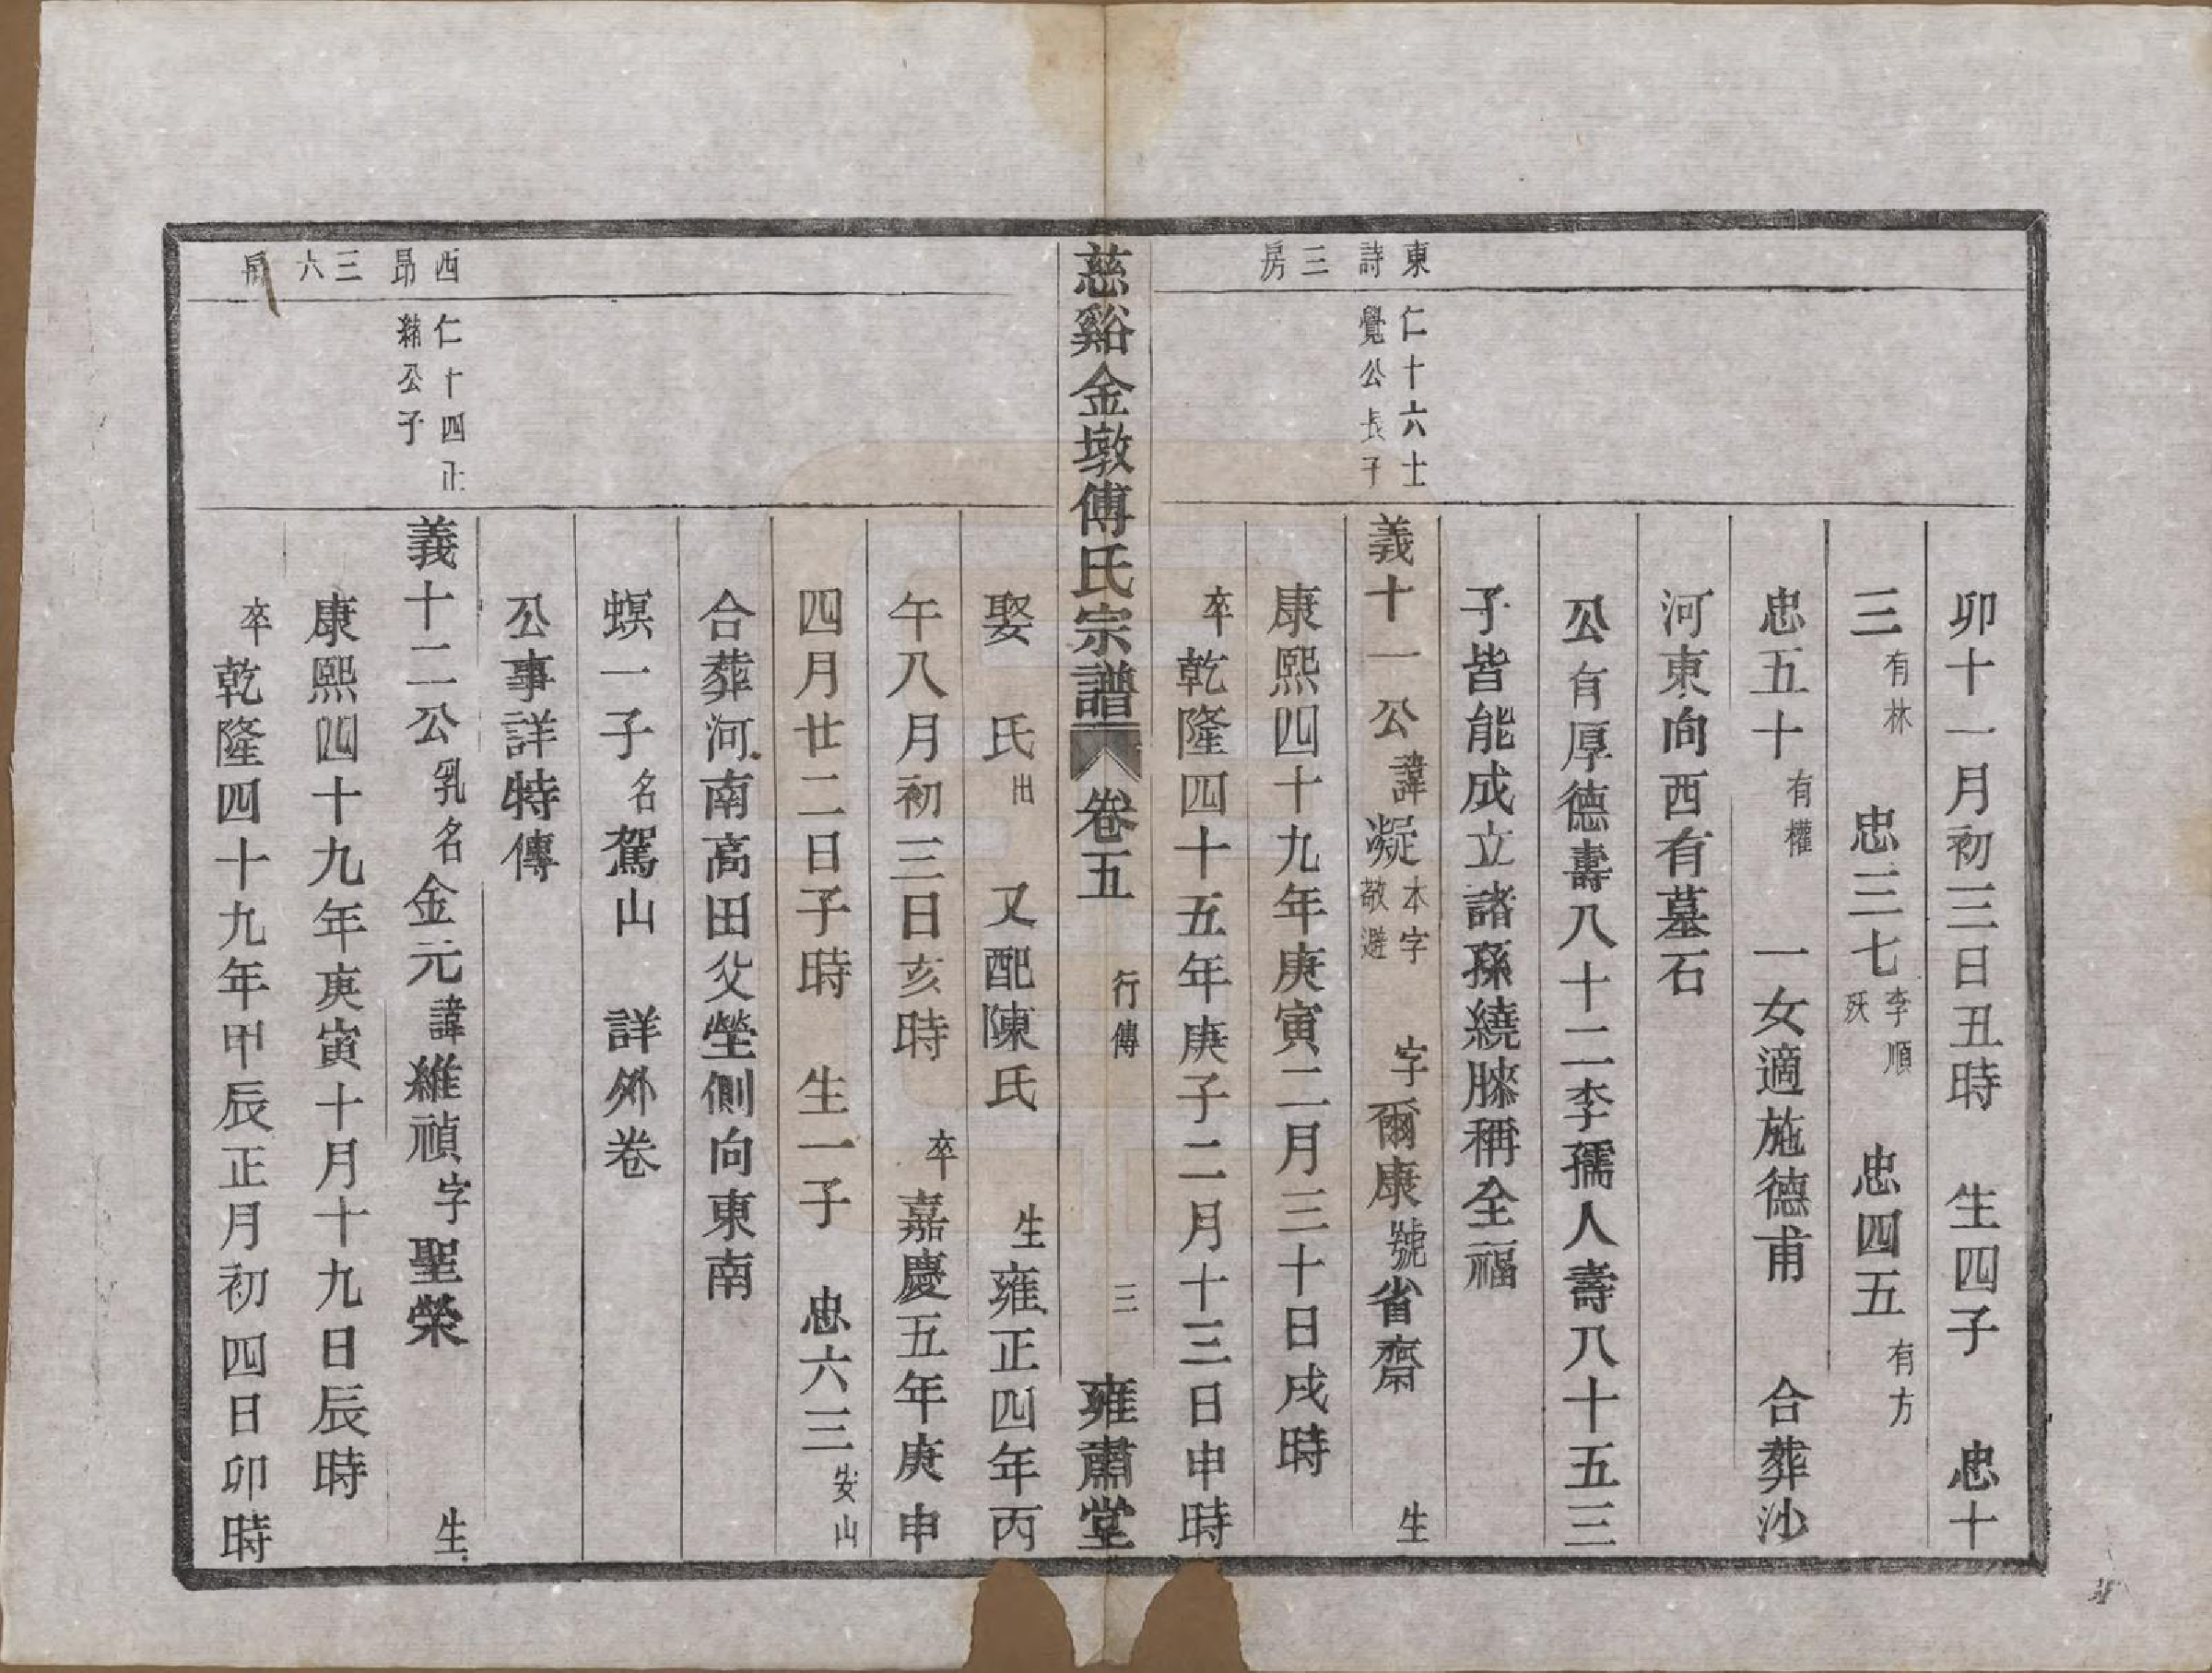 卯十一月初三日丑時　生四子　忠十
三有林　忠三七李順殀　忠四五有方
忠五十有權　一女適施德甫　合葬沙
河東向西有墓石
公有厚德壽八十二李孺人壽八十五三
子皆能成立諸孫繞膝稱全福
東詩三房
仁十六士覺公長子
義十一公諱凝本字敬避　字爾康號省齋　生
康熙四十九年庚寅二月三十日戌時
卒乾隆四十五年庚子二月十三日申時
慈谿金墩傅氏宗譜　卷五　行傳　三　雍肅堂
娶　氏出　又配陳氏　生雍正四年丙
午八月初三日亥時　卒嘉慶五年庚申
四月廿二日子時　生一子　忠六三安山
合葬河南高田父塋側向東南
螟一子名駕山　詳外卷
公事詳特傳
西昂三六房
仁十四正繡公子
義十二公乳名金元諱維禎字聖榮　生
康熙四十九年庚寅十月十九日辰時
卒乾隆四十九年甲辰正月初四日卯時